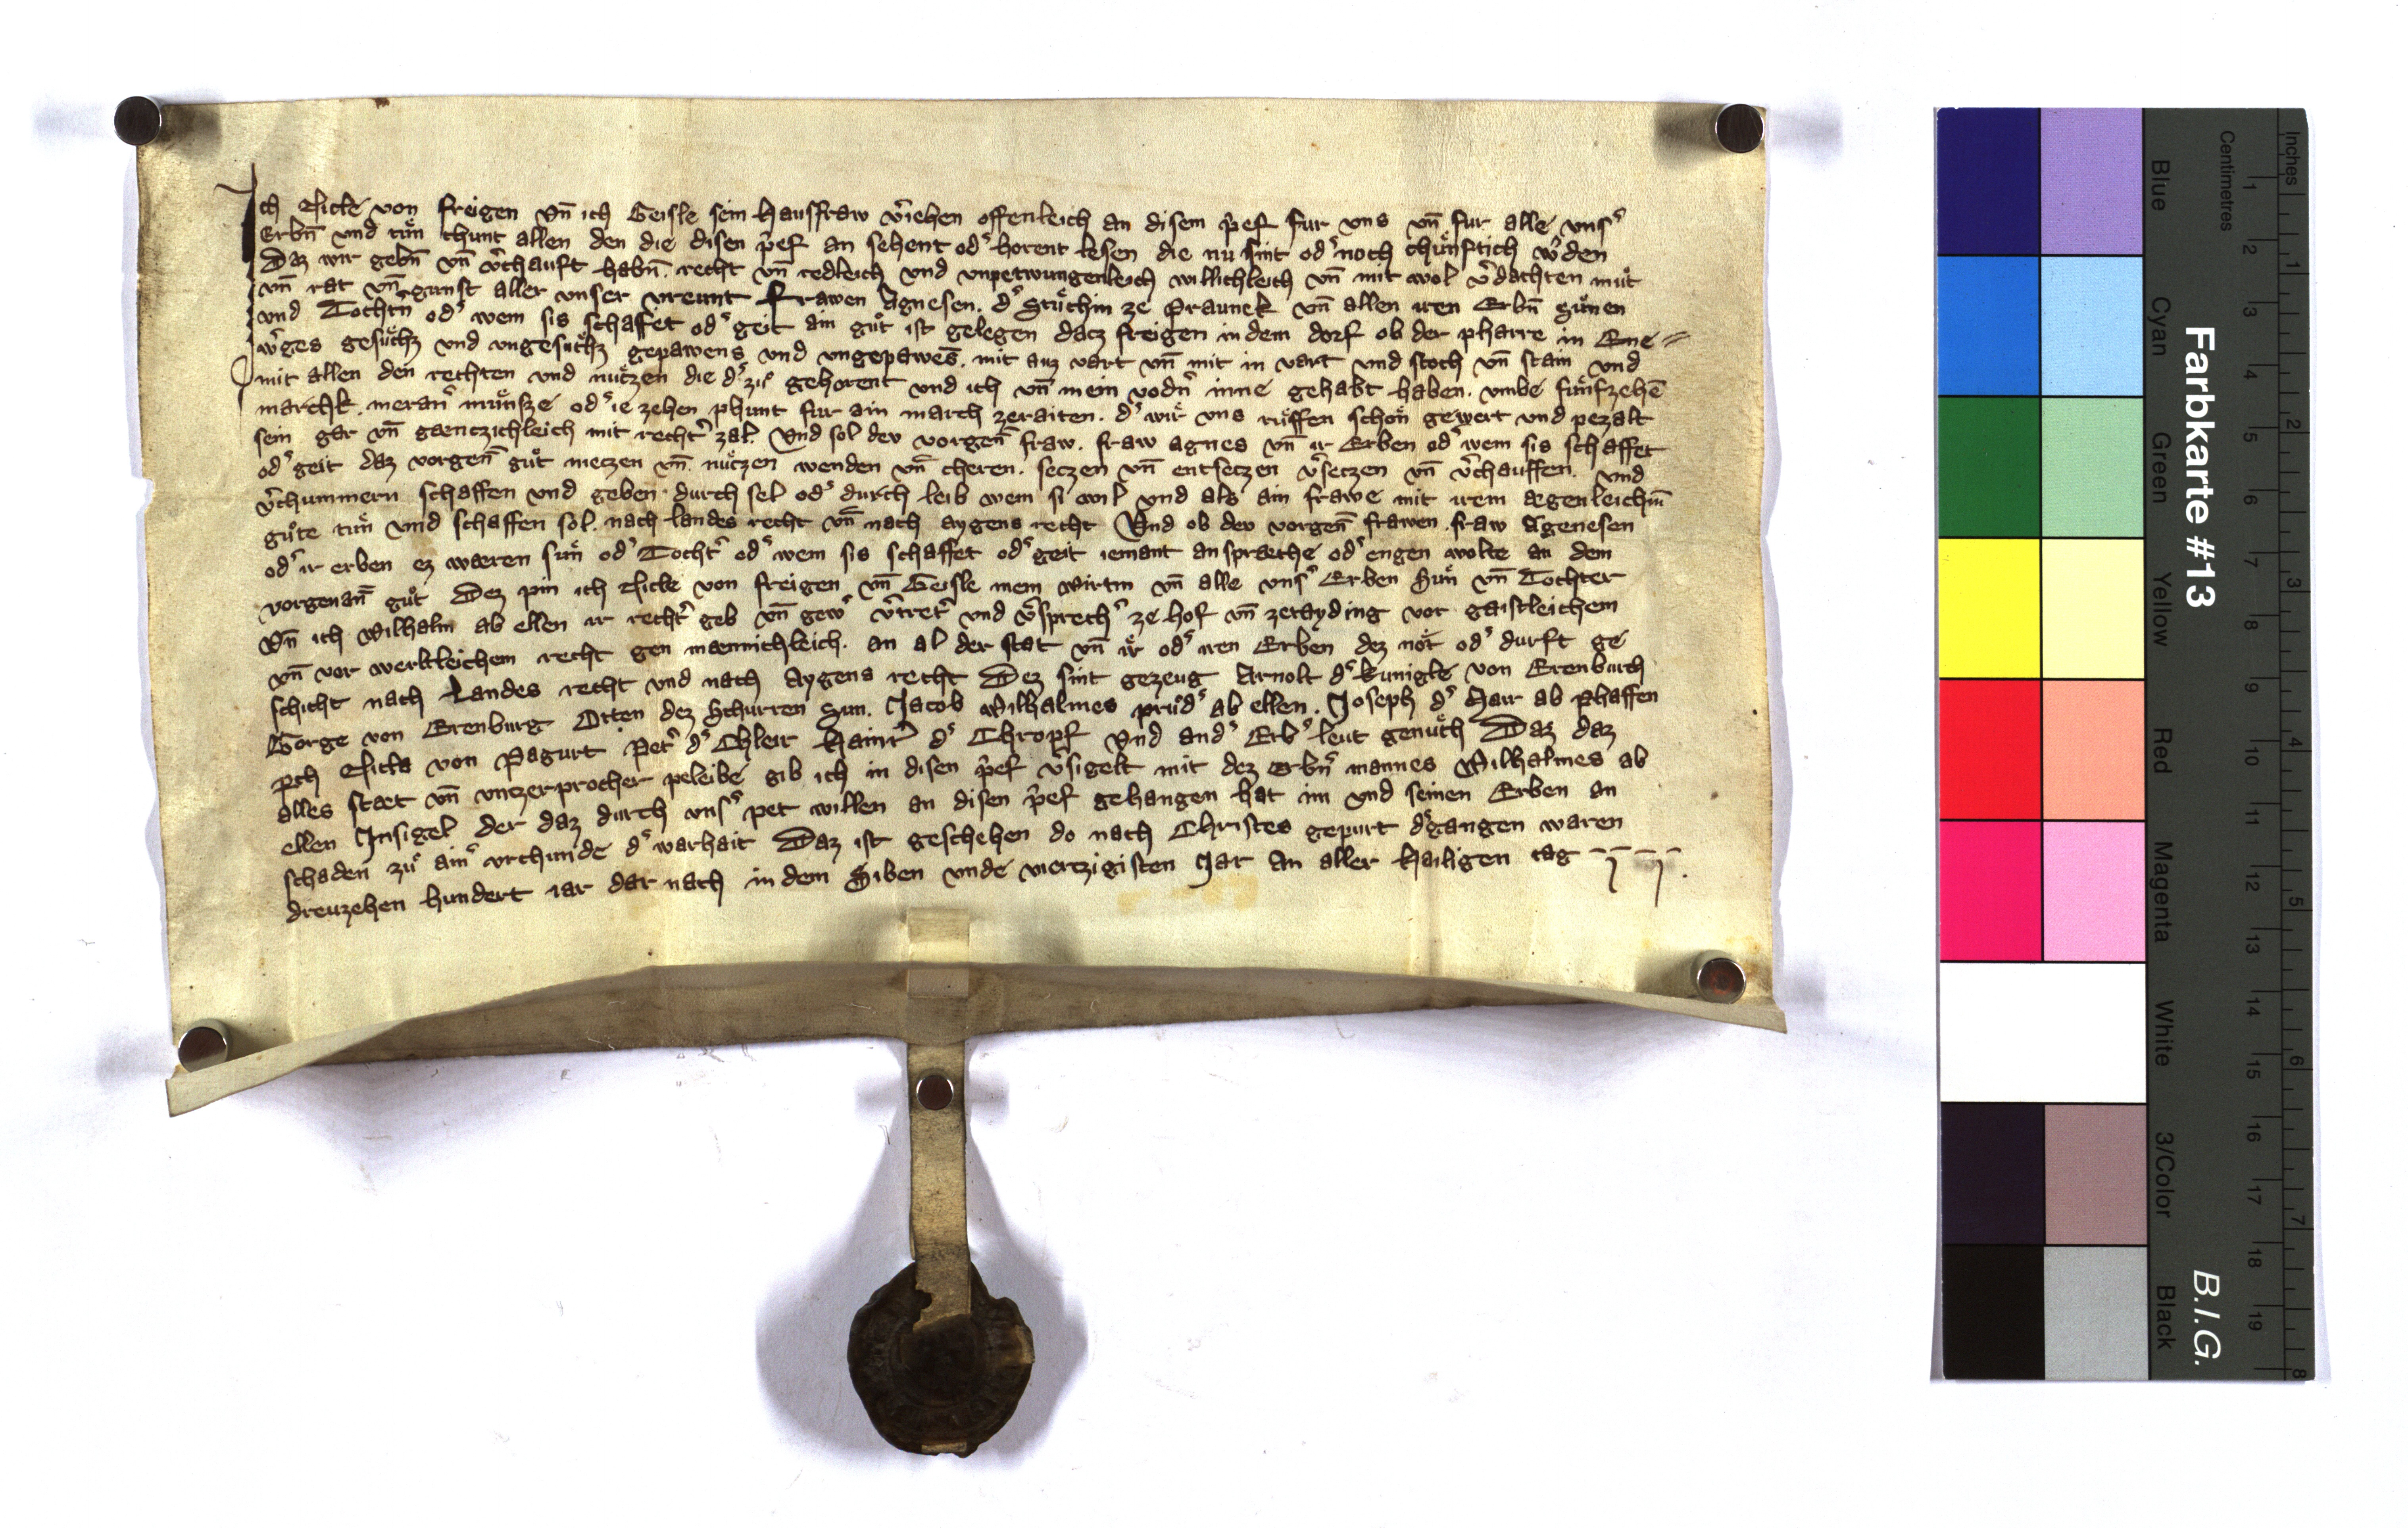 Ich Nicle von freigen vn̄ ich Geisle sein hausfraw v̓iehen offenleich an disem p̓ef fur vns vn̄ fur alle vns̓
Erbn̄ vnd tuͤn chunt allen den die disen p̓ef an sehent od̓ horent lesen die nu sint od̓ noch chuͤnftich w̓den
Daz wir gebn̄ vn̄ v̓chauft habn̄. recht vn̄ redleich vnd vnpetwungenleich willichleich vn̄ mit wol v̓dachten muͤt
vn̄ rat vn̄ gunst aller vnser vreunt frawen Agnesen. d̓ Stuͤchin ze Praunek vn̄ allen iren Erbn̄ Suͤnen
vnd Tochtn̓ od̓ wem sis schaffet od̓ geit ain guͤt ist gelegen dacz freigen in dem dorf ob der pharre in Ene=
w̓ges gesuͤchz vnd vngesuͤchz gepawens vnd vngepawes̄. mit auz vart vn̄ mit in vart vnd stoch vn̄ stain vnd
mit allen den rechten vnd nuͤczen die d̓ zuͤ gehorent vnd ich vn̄ mein vodn̓ inne gehabt haben. vmbe fuͤnfzehē
marchk. meran̓ muͤnsze od̓ ie zehen phunt fur ain march zeraiten. d̓ wir vns ruͤffen schon gewert vnd pezalt
sein gar vn̄ gaenczichleich mit recht̓ zal. Vnd sol dev vorgen̄ fraw. fraw agnes vn̄ ir Erben od̓ wem sis schaffet
od̓ geit daz vorgen̄ guͤt niezen vn̄. nuͤczen wenden vn̄ cheren. seczen vn̄ entseczen v̓seczen vn̄ v̓chauffen. vnd
v̓chummern schaffen vnd geben. durch sel od̓ durch leib wem si wil vnd als ain frawe mit irem aegenleichm̄
guͤte tuͤn vnd schaffen sol. nach landes recht vn̄ nach aygens recht Vnd ob dev vorgen̄ frawen. fraw Agenesen
od̓ ir erben ez waeren suͤn od̓ Tocht̓ od̓ wem sis schaffet od̓ geit iemant ansprache od̓ engen wolte an dem
vorgenan̄ guͤt Dez pin ich Nicle von freigen vn̄ Geisle mein wirtin vn̄ alle vns̓ Erben Suͤn vn̄ Tochter
Vn̄ ich Wilhalm ab ellen ir recht̓ geb vn̄ gew̓ v̓tret̓ vnd v̓sprech̓ ze hof vn̄ zetayding vor gaistleichem
vn̄ vor werltleichem recht gen maennichleich. an al der stat vn̄ ir od̓ iren Erben dez not od̓ durft ge
schicht nach Landes recht vnd nach Aygens recht Dez sint gezeug Arnolt d̓ kunigle von Erenburch
Gorge von Erenburg Otten dez Schurren sun. Jacob Wilhalmes pruͤd̓ ab ellen. Joseph d̓ Hair ab Phaffen
pch Nicla von Pagurt Pet̓ d̓ Chleir Hainr̓ d̓ Chropf Vnd and̓ Erb̓ leut genuͤch Daz daz
alles staet vn̄ vnczerprocher peleibe gib ich in disen p̓ef v̓sigelt mit dez erbn̓ mannes Wilhalmes ab
ellen Insigel der daz durch vns̓ pet willen an disen p̓ef gehangen hat im vnd seinen Erben an
schaden zuͤ ain̓ vrchunde d̓ warhait Daz ist geschehen do nach Christes gepurt d̓gangen waren
dreuzehen hundert iar dar nach in dem Siben vnde viertzigisten Jar An aller Hailigen tag
Farbkarte #13
B.I.G.
Blue Cyan Green Yellow Red Magenta White 3/Color Black
Centimetres 1 2 3 4 5 6 7 8 9 10 11 12 13 14 15 16 17 18 19
Inches 1 2 3 4 5 6 7 8